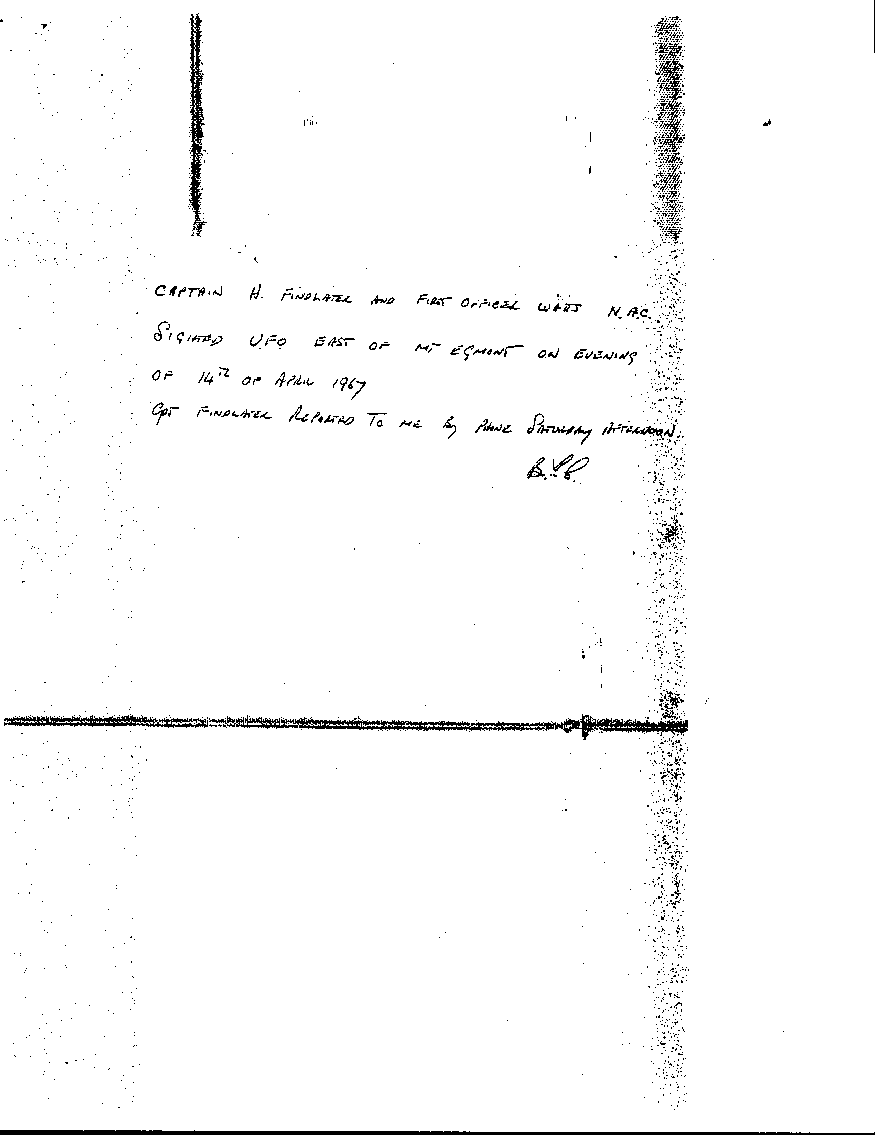 CAPTAIN H. FINDLATER AND FIRST OFFICER WATTS N.A.C.
SIGHTED UFO EAST OF MT EGMONT ON EVENING
OF 14TH OF APRIL 1967
CPT FINDLATER REPORTED TO ME BY PHONE SATURDAY AFTERNOON.